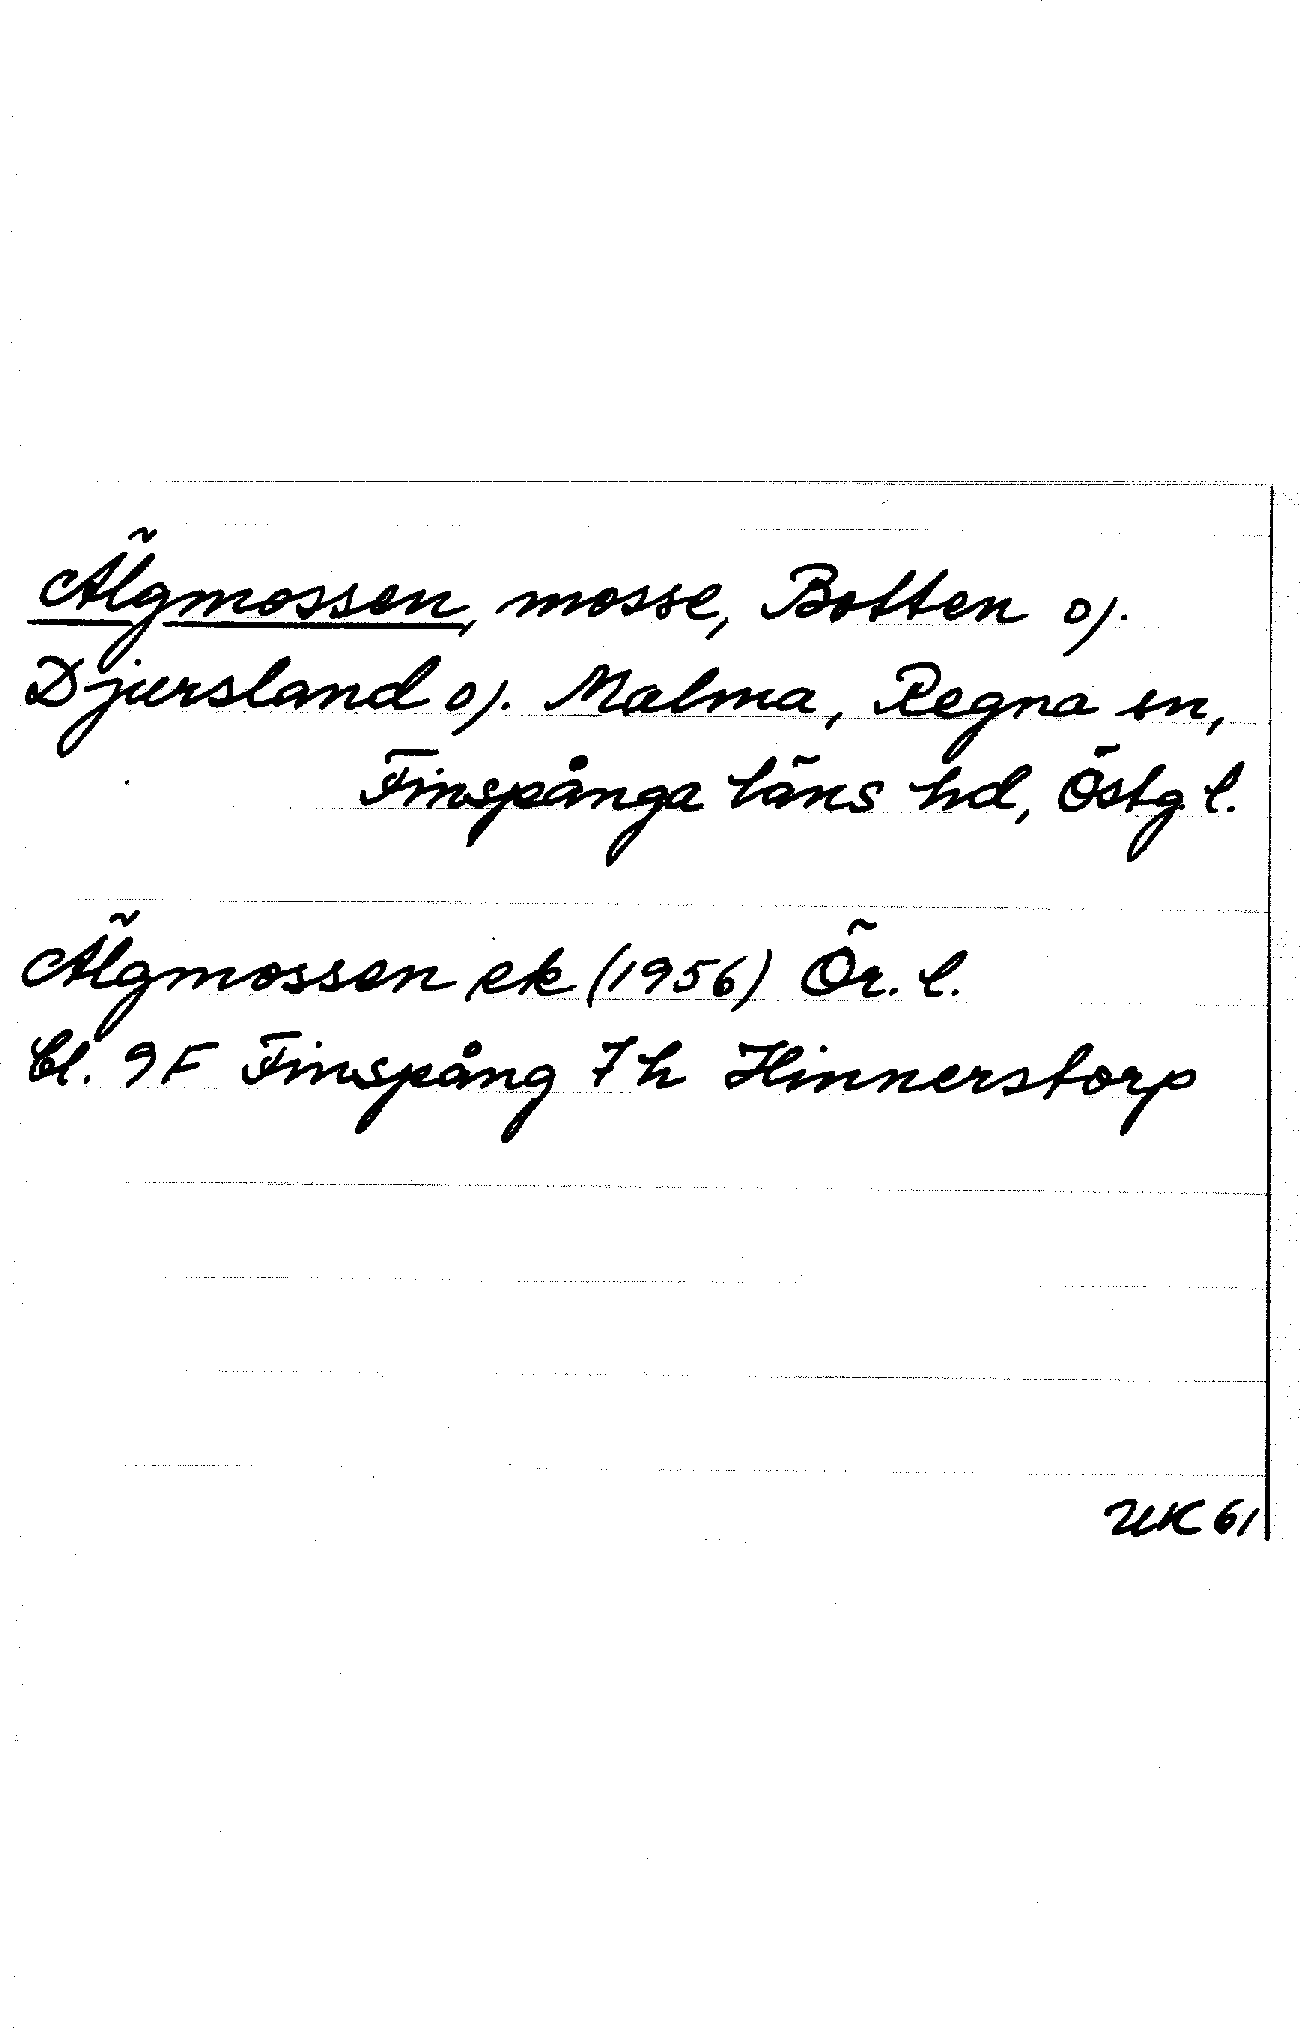 Älgmossen, mosse, Botten o).
Djursland o). Malma, Regna sn,
Finspånga läns hd, Östg l.
Älgmossen ek (1956) Ör. l.
bl. 9F Finspång 7h Hinnerstorp
UK 61